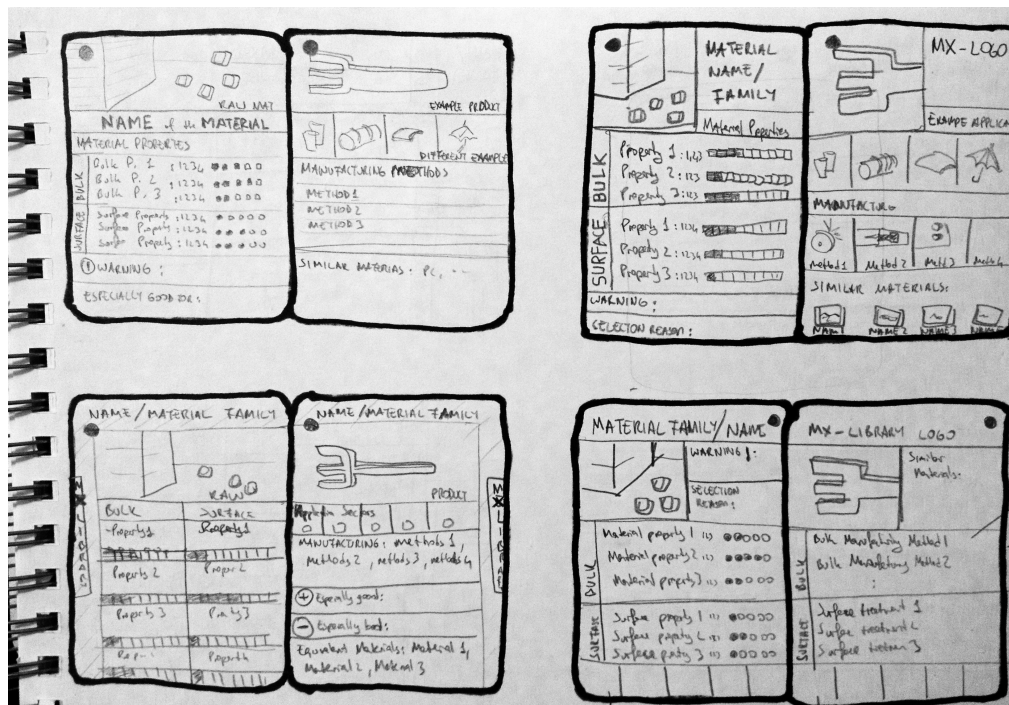 RAW MAT
NAME of the MATERIAL
MATERIAL PROPERTIES
BULK
Bulk P. 1 : 1234
Bulk P. 2 : 1234
Bulk P. 3 : 1234
SURFACE
Surface Property : 1234
Surface Property : 1234
Surface Property : 1234
! WARNING :
ESPECIALLY GOOD FOR :
EXAMPLE PRODUCT
DIFFERENT EXAMPLE
MANUFACTURING METHODS
METHOD 1
METHOD 2
METHOD 3
SIMILAR MATERIAS : PC, ...
MATERIAL
NAME /
FAMILY
Material Properties
BULK
Property 1 : 123
Property 2 : 123
Property 3 : 123
SURFACE
Property 1 : 1234
Property 2 : 1234
Property 3 : 1234
WARNING :
SELECTION REASON :
MX-LOGO
EXAMPE APPLICA
MANUFACTURG
Method 1 Method 2 Meth. 3
SIMILAR MATERIALS:
NAM 1 NAME 2 NAME 3 NAME
NAME/MATERIAL FAMILY
RAW
BULK SURFACE
Property 1 Property 1
Property 2
Property 3 Property 3
NAME/MATERIAL FAMILY
PRODUCT
MX LIBRARY
Sectors
MANUFACTURING : methods 1,
methods 2, methods 3, methods 4
+ Especially good:
- Especially bad:
Equivalent Materials: Material 1,
Material 2, Material 3
MATERIAL FAMILY/NAME
WARNING ! :
SELECTION
REASON :
BULK
Material property 1
Material property 2
Material property 3
SURFACE
Surface property 1
Surface property 2
Surface property 3
MX-LIBRARY LOGO
Similar
Materials:
BULK
Bulk Manufacturing Method 1
Bulk Manufacturing Method 2
:
SURFACE
Surface treatment 1
Surface treatment 2
Surface treatmen 3